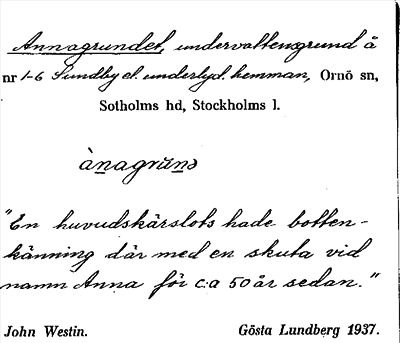 Annagrundet, undervattensgrund å
nr 1-6 Sundby el. underlyd. hemman, Ornö sn,
Sotholms hd, Stockholms l.
ànagrŭnd
"En huvudskärslots hade botten-
känning där med en skuta vid
namn Anna för c:a 50 år sedan."
John Westin. Gösta Lundberg 1937.